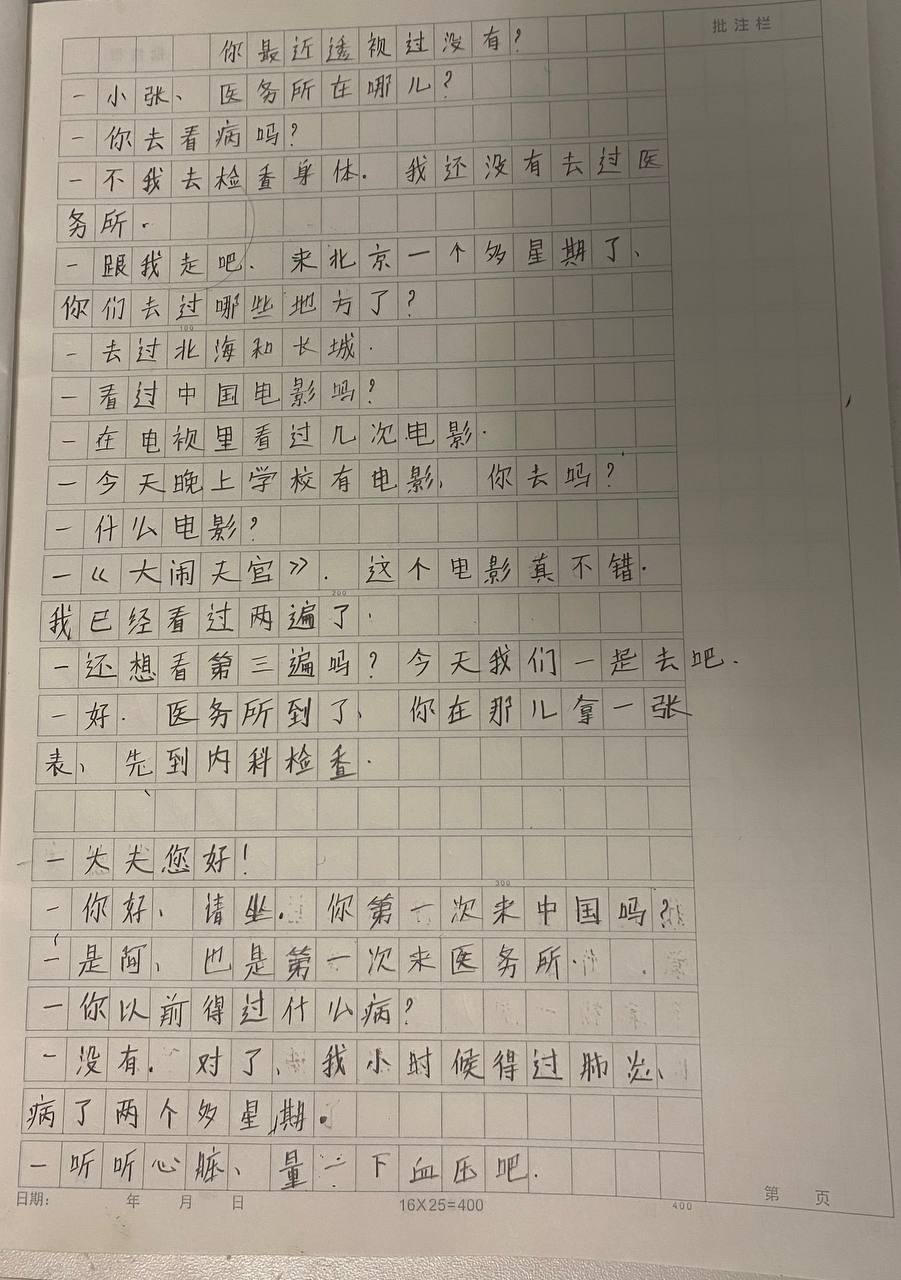 批注栏
你最近透视过没有?
一小张、医务所在哪儿?
一你去看病吗?
一不我去检查身体. 我还没有去过医
务所.
一跟我走吧. 来北京一个多星期了、
你们去过哪些地方了?
100
一去过北海和长城.
一看过中国电影吗?
一在电视里看过几次电影.
一今天晚上学校有电影、你去吗?
一什么电影?
一《大闹天宫》. 这个电影真不错.
200
我已经看过两遍了.
一还想看第三遍吗? 今天我们一起去吧.
一好. 医务所到了、你在那儿拿一张
表、先到内科检查.
一大夫您好!
300
一你好、请坐. 你第一次来中国吗?
一是阿、也是第一次来医务所.
一你以前得过什么病?
一没有. 对了、我小时候得过肺炎、
病了两个多星期.
一听听心脏、量一下血压吧.
日期: 年 月 日 16X25=400 400 第 页